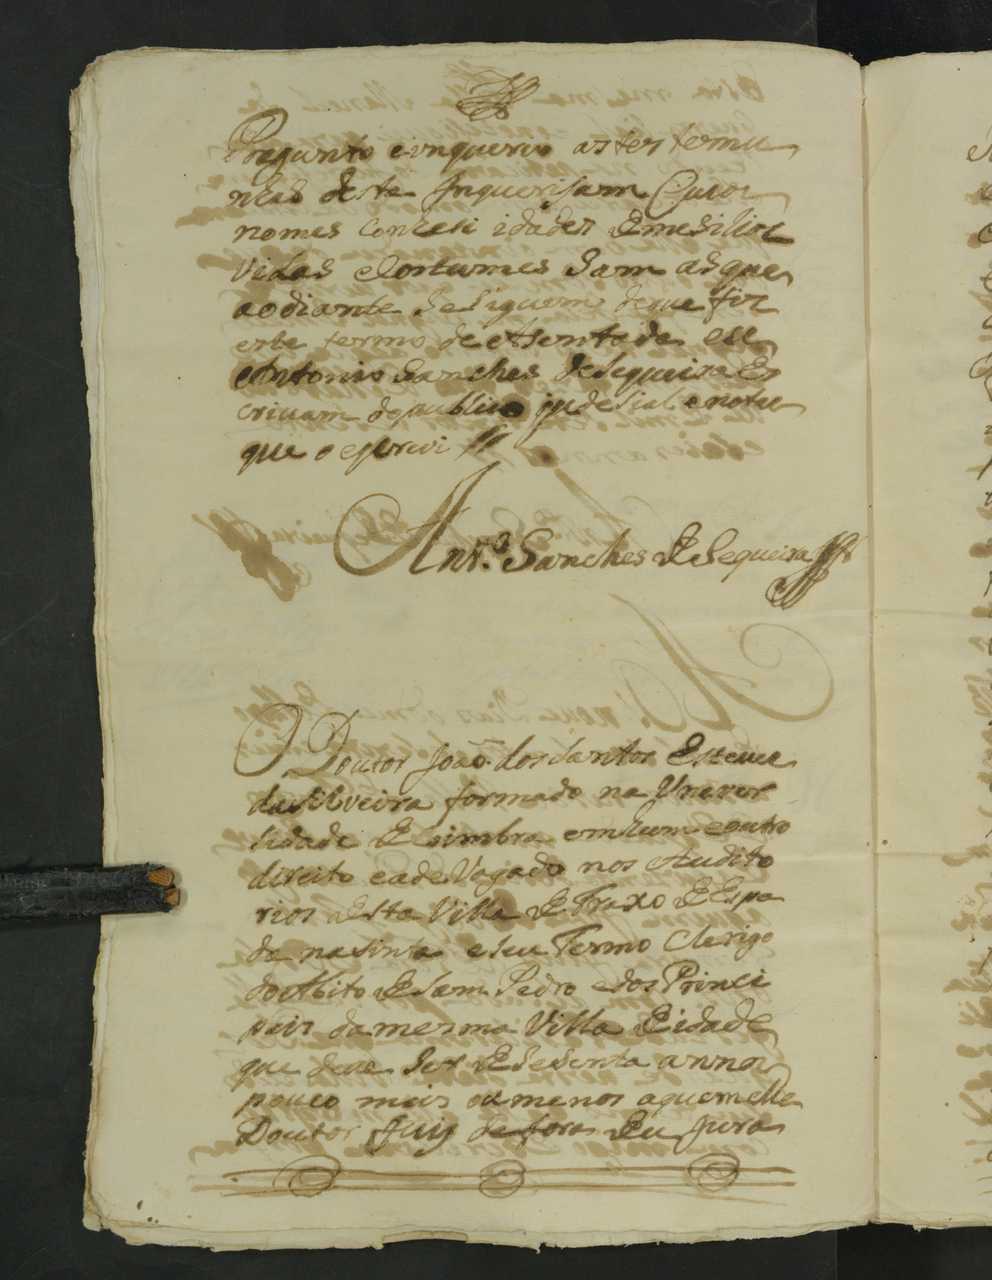 Pregunto e inquero as testemu
nhas deste Inquerisam Cuios
nomes Contesi idades E mesillos
Vidas e Costumes Sam as que
ao diante se siguem de que fis
este termo de Asentada eu
Antonio Sanches de Sequeira Es
crivam do publico judesial e notas
que o escrevi
Antº Sanches de Sequeira
O Doutor João dos Santos Esteves
da Silveira formado na Univer
sidade de Coimbra em hum e outro
direito e adeVogado nos Audito
rios desta Villa de Freixo de Espa
da na Sinta e seu Termo Clerigo
do Abito de Sam Pedro e dos Princi
pais da mesma Villa e idade
que disse ser de sesenta annos
pouco mais ou menos a quem elle
Doutor Juis de fora deu Jura